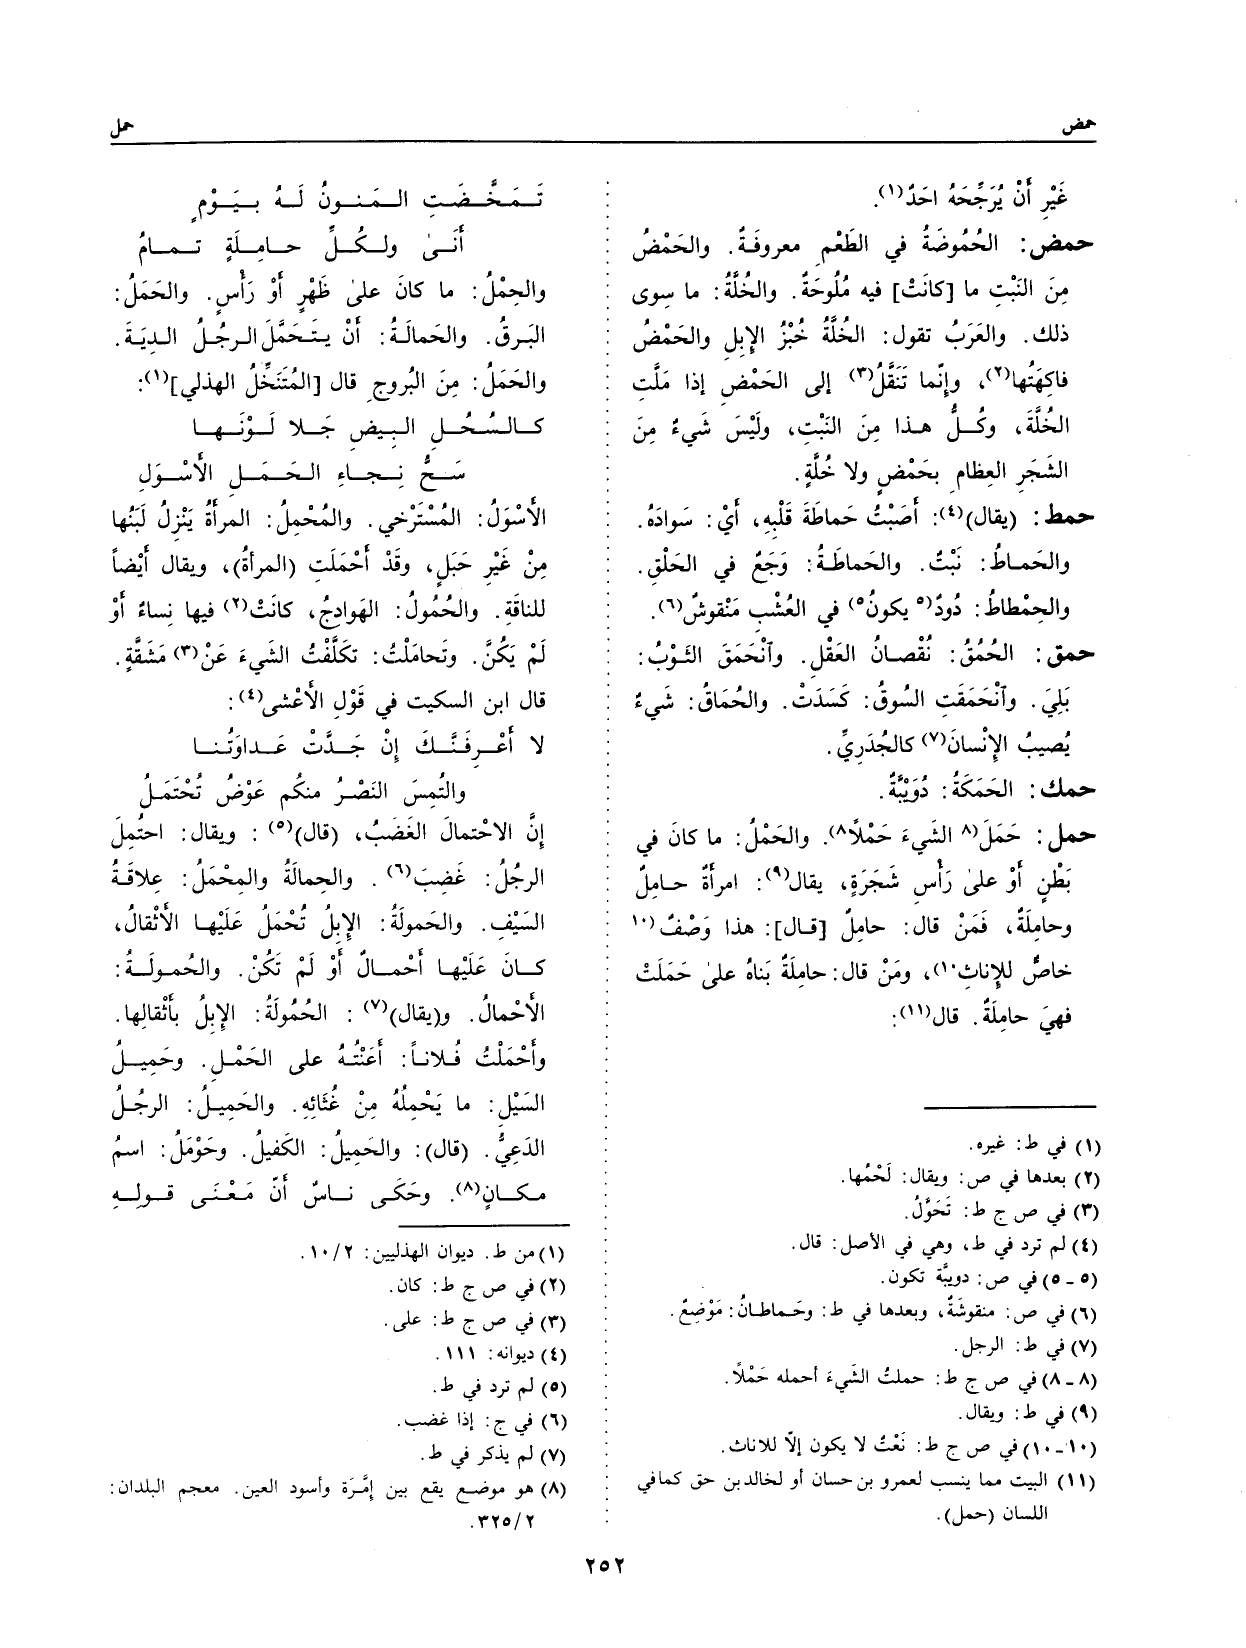 حمض
حمل
غَيْر أَنْ يُرَجِّحَهُ احَدٌ(١).
حمض: الحُمُوضَةُ في الطَعْمِ معروفَةٌ. والحَمْضُ
مِنَ النَبْتِ ما [كانَتْ] فيه مُلُوحَةٌ. والخُلَّةُ: ما سِوى
ذلك. والعَرَبُ تقول: الخُلَّةُ خُبْزُ الإِبل والحَمْضُ
فاكِهَتُها(٢)، وإنَّما تَنَقَّلُ(٣) إلى الحَمْضِ إذا مَلَّت
الخُلَّةَ، وكُلُّ هذا مِنَ النَبْتِ، ولَيْسَ شَيءٌ مِنَ
الشَجَرِ العِظام بحَمْضٍ ولا خُلَّةٍ.
حمط: (يقال)(٤): أَصَبْتُ حَماطَةَ قَلْبِهِ، أَيْ: سَوادَهُ.
والحَماطُ: نَبْتٌ. والحَماطَةُ: وَجَعٌ في الحَلْقِ.
والحِمْطاطُ: دُودٌ(٥ يكونُ٥) في العُشْبِ مَنْقوشٌ(٦).
حمق: الحُمْقُ: نُقْصانُ العَقْلِ. وٱنْحَمَقَ الثَوْبُ:
بَلِيَ. وٱنْحَمَقَتِ السُوقُ: كَسَدَتْ. والحُمَاقُ: شَيءٌ
يُصيبُ الإِنْسانَ(٧) كالجُدَرِيِّ.
حمك: الحَمَكَةُ: دُوَيْبَّةٌ.
حمل: حَمَلَ(٨ الشَيءَ حَمْلاً٨). والحَمْلُ: ما كانَ في
بَطْنٍ أَوْ علىٰ رَأْسِ شَجَرَةٍ، يقال(٩): امرأةٌ حامِلٌ
وحامِلَةٌ، فَمَنْ قال: حامِلٌ [قال]: هذا وَصْفٌ(١٠
خاصٌّ للإِناثِ١٠)، ومَنْ قال: حامِلَةٌ بَناهُ علىٰ حَمَلَتْ
فهيَ حامِلَةٌ. قال(١١):
(١) في ط: غيره.
(٢) بعدها في ص: ويقال: لَحْمُها.
(٣) في ص ج ط: تَحَوَّلُ.
(٤) لم ترد في ط، وهي في الأصل: قال.
(٥ - ٥) في ص: دويبَّة تكون.
(٦) في ص: منقوشَةٌ، وبعدها في ط: وحَماطانُ: مَوْضِعٌ.
(٧) في ط: الرجل.
(٨ - ٨) في ص ج ط: حملتُ الشَيءَ أحمله حَمْلاً.
(٩) في ط: ويقال.
(١٠ - ١٠) في ص ج ط: نَعْتٌ لا يكون إلاّ للاناث.
(١١) البيت مما ينسب لعمرو بن حسان أو لخالد بن حق كما في
اللسان (حمل).
تَمَخَّضَتِ المَنونُ لَهُ بيَوْمٍ
أَنىٰ ولكُلِّ حامِلَةٍ تمامُ
والحِمْلُ: ما كانَ علىٰ ظَهْرٍ أَوْ رَأْسٍ. والحَمَلُ:
البَرقُ. والحَمالَةُ: أَنْ يتَحَمَّلَ الرجُلُ الديَةَ.
والحَمَلُ: مِنَ البُروجِ قال [المُتَنَخِّلُ الهذلي](١):
كالسُحُلِ البيضِ جَلا لَوْنَها
سَحُّ نِجاءِ الحَمَلِ الأَسْوَلِ
الأَسْوَلُ: المُسْتَرْخي. والمُحْمِلُ: المرأةُ يَنْزِلُ لَبَنُها
مِنْ غَيْرِ حَبَلٍ، وقَدْ أَحْمَلَتِ (المرأةُ)، ويقال أيْضاً
للناقَةِ. والحُمُولُ: الهَوادِجُ، كانَتْ(٢) فيها نِساءٌ أَوْ
لَمْ يَكُنَّ. وتَحامَلْتُ: تكَلَّفْتُ الشيءَ عَنْ(٣) مَشَقَّةٍ.
قال ابن السكيت في قَوْلِ الأَعْشى(٤):
لا أَعْرِفَنَّكَ إنْ جَدَّتْ عَداوَتُنا
والتُمِسَ النَصْرُ منكم عَوْضُ تُحْتَمَلُ
إنَّ الاحْتِمالَ الغَضَبُ، (قال)(٥): ويقال: احتُمِلَ
الرجُلُ: غَضِبَ(٦). والحِمالَةُ والمِحْمَلُ: عِلاقَةُ
السَيْفِ. والحَمولَةُ: الإِبلُ تُحْمَلُ عَلَيْها الأثْقالُ،
كانَ عَلَيْها أَحْمالٌ أَوْ لَمْ تَكُنْ. والحُمولَةُ:
الأَحْمالُ. و(يقال)(٧): الحُمُولَةُ: الإِبلُ بأَثْقالِها.
وأَحْمَلْتُ فُلاناً: أَعَنْتُهُ على الحَمْلِ. وحَميلُ
السَيْلِ: ما يَحْمِلُهُ مِنْ غُثائِهِ. والحَميلُ: الرجُلُ
الدَعِيُّ. (قال): والحَميلُ: الكَفيلُ. وحَوْمَلُ: اسمُ
مكانٍ(٨). وحَكَى ناسٌ أَنّ مَعْنَى قولِهِ
(١) من ط. ديوان الهذليين: ٢/ ١٠.
(٢) في ص ج ط: كان.
(٣) في ص ج ط: على.
(٤) ديوانه: ١١١.
(٥) لم ترد في ط.
(٦) في ج: إذا غضب.
(٧) لم يذكر في ط.
(٨) هو موضع يقع بين إمَّرَة وأسود العين. معجم البلدان:
٢/ ٣٢٥.
٢٥٢